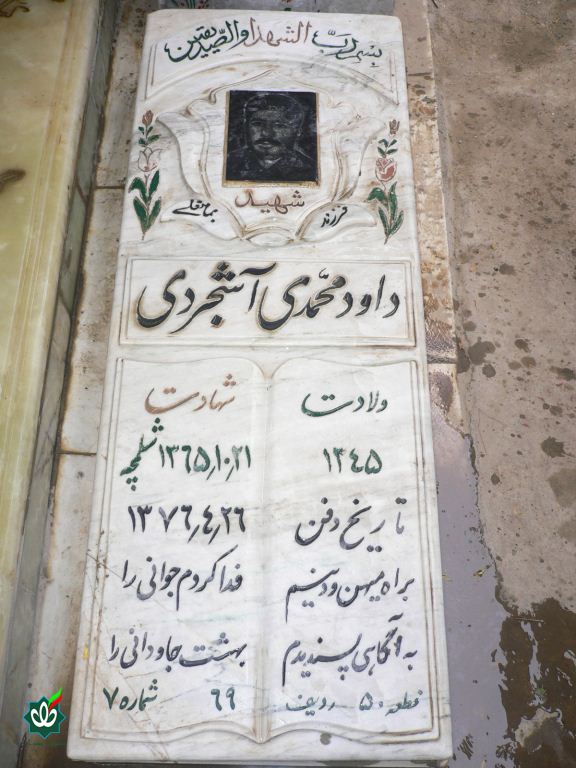 بسم رب الشهداء والصدیقین
شهید
فرزند
داود محمدی آشجردی
ولادت شهادت
۱۳۴۵ ۱۳۶۵٫۱۰٫۲۱ شلمچه
تاریخ دفن ۱۳۷۶٫۴٫۲۶
براه میهن و دینم فدا کردم جوانی را
به آگاهی پسندیدم بهشت جاودانی را
قطعه ۵۰ ردیف ۶۹ شماره ۷